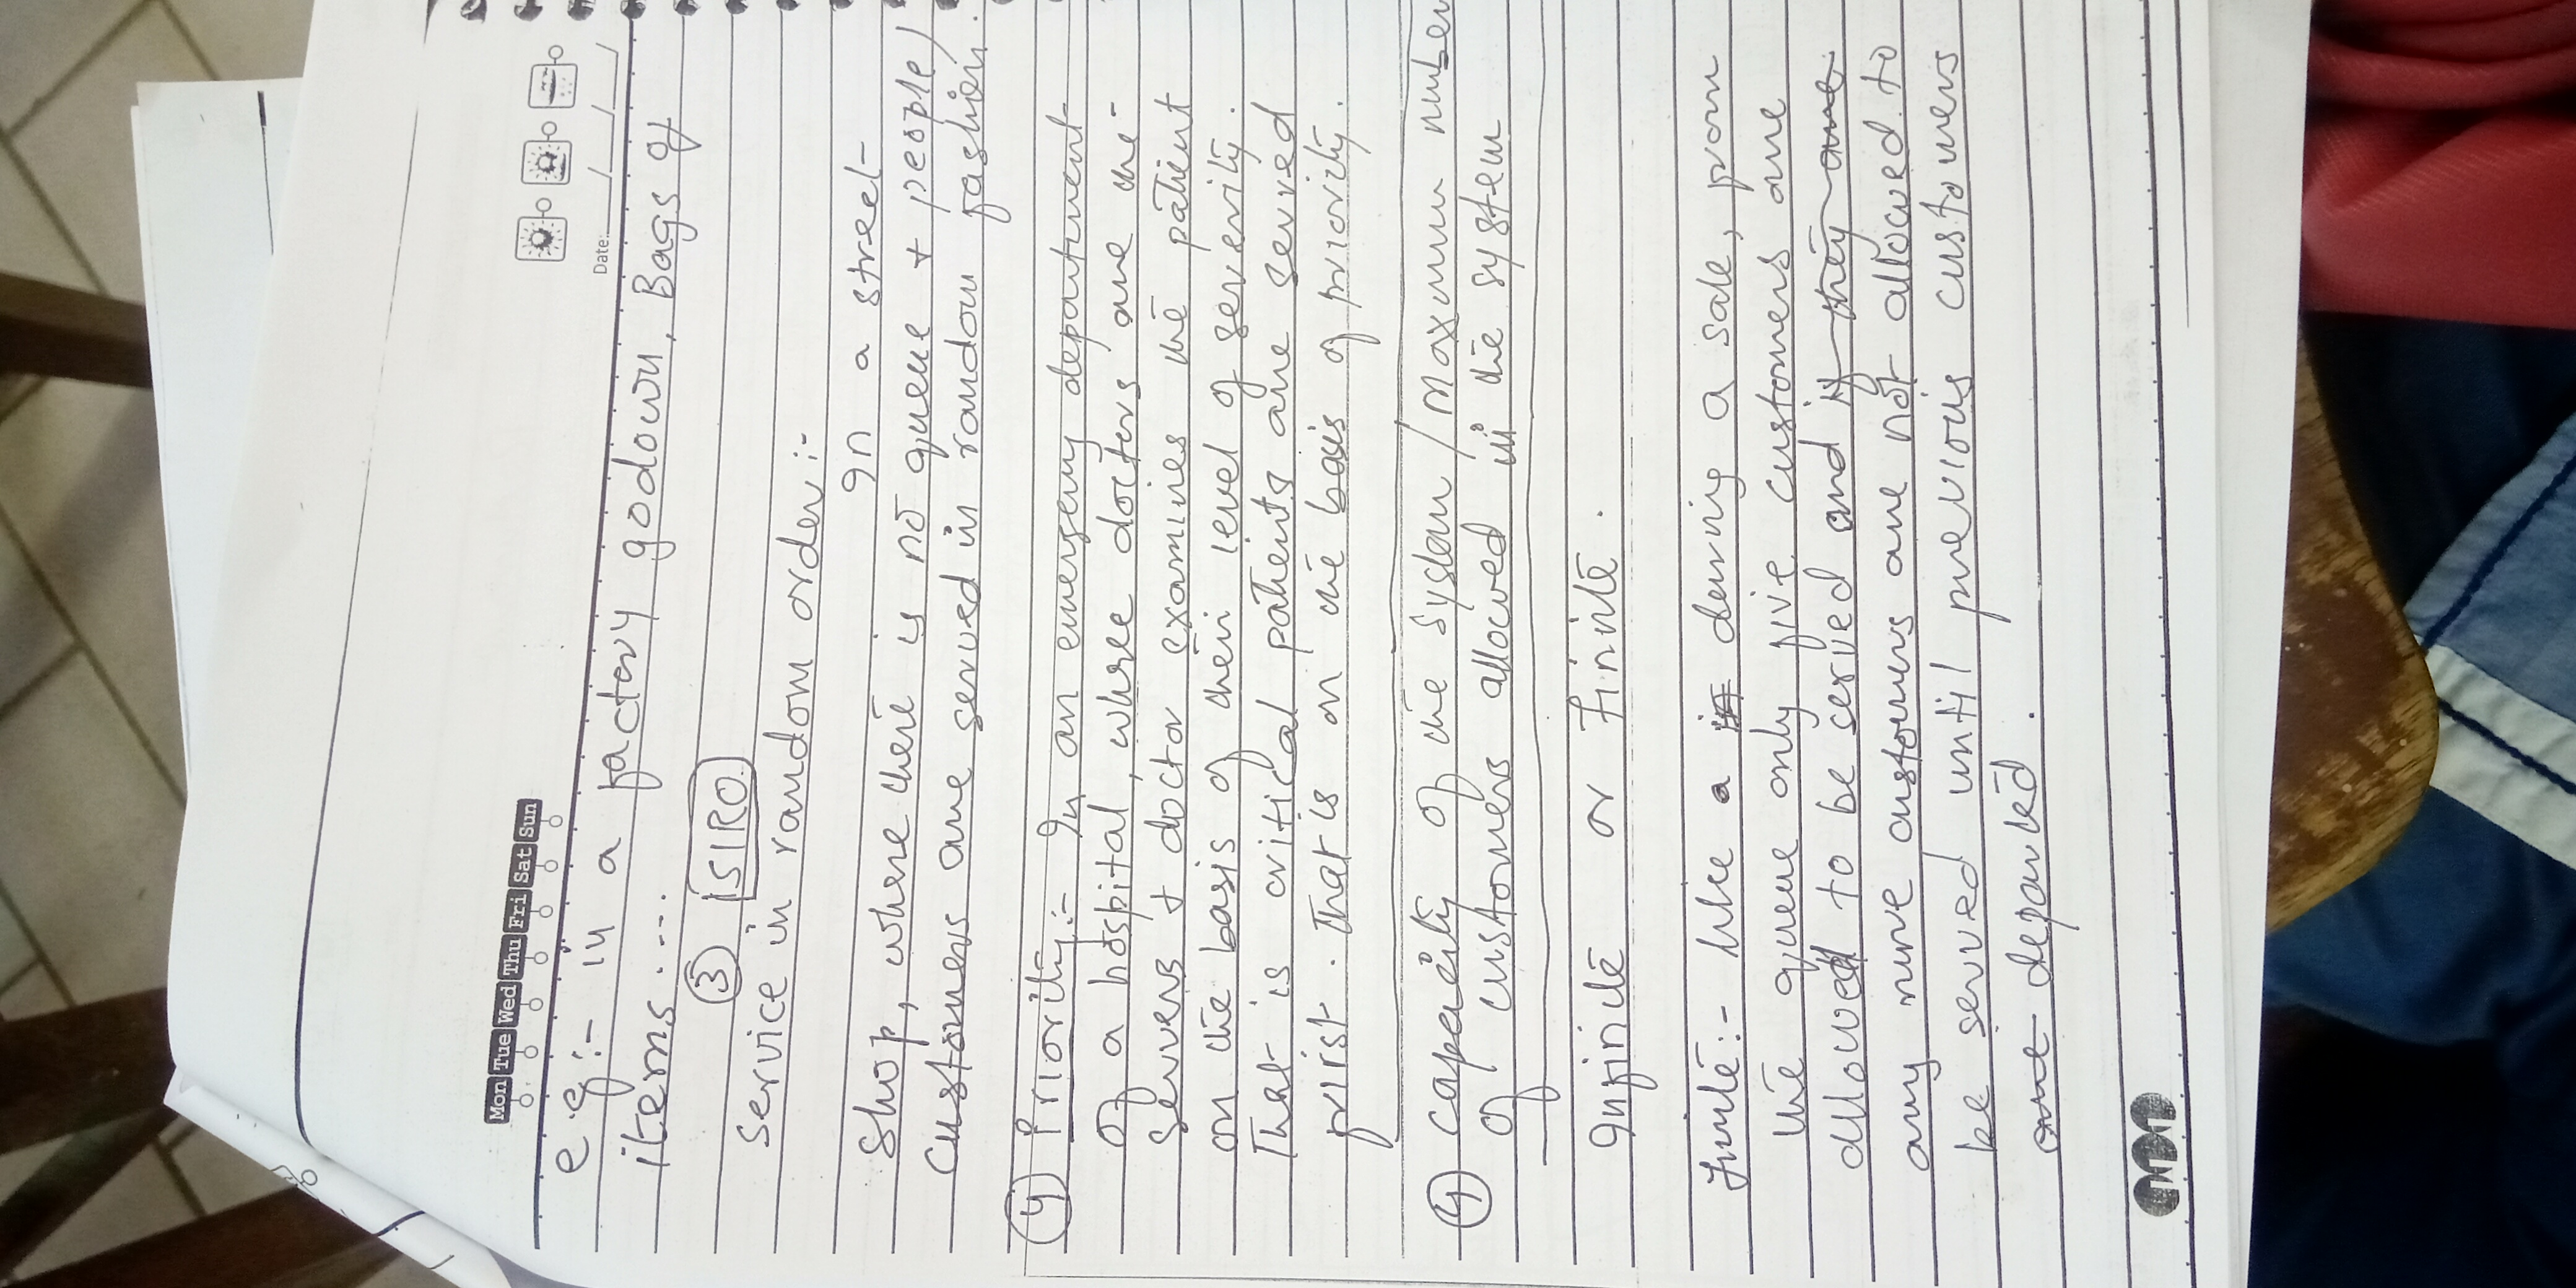 Mon Tue Wed Thu Fri Sat Sun
Date: / /
e.g:- in a factory godown, Bags of
items ....
③ SIRO
Service in random order :-
In a street
shop, where there is no queue + people/
customers are served in random fashion.
④ Priority:- In an emergency department
of a hospital, where doctors are the
servers + doctor examines the patient
on the basis of their level of severity.
That is critical patients are served
first. That is on the basis of priority.
④ Capacity of the system / Maximum number
of customers allowed in the system
Infinite or Finite.
Finite:- like a in during a sale, from
the queue only five customers are
allowed to be served and if they are
any more customers are not allowed to
be served until previous customers
are departed.